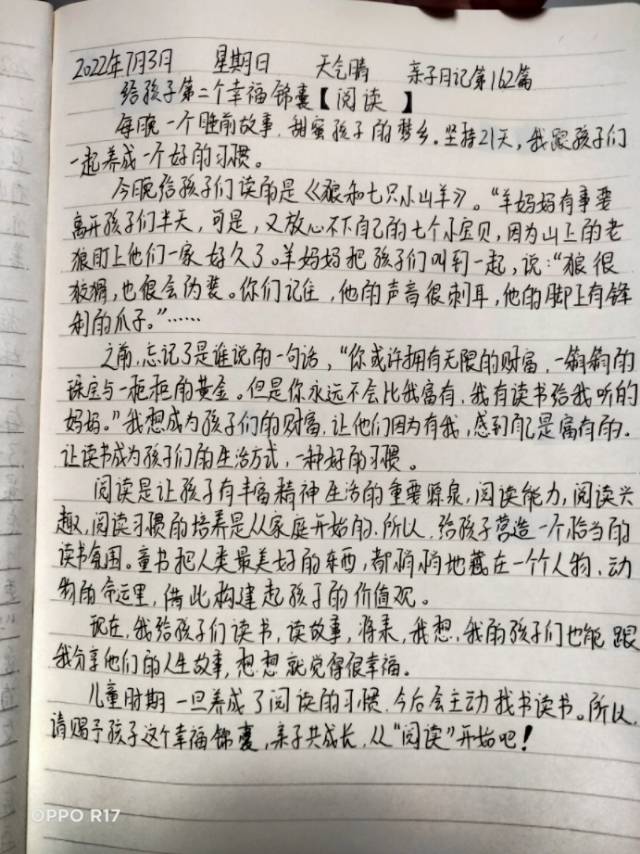 2022年7月3日 星期日 天气晴 亲子日记第162篇
给孩子第二个幸福锦囊【阅读】
每晚一个睡前故事,甜蜜孩子的梦乡。坚持21天,我跟孩子们
一起养成一个好的习惯。
今晚给孩子们读的是《狼和七只小山羊》。“羊妈妈有事要
离开孩子们半天,可是,又放心不下自己的七个小宝贝,因为山上的老
狼盯上他们一家好久了。羊妈妈把孩子们叫到一起,说:“狼很
狡猾,也很会伪装。你们记住,他的声音很刺耳,他的脚上有锋
利的爪子。”……
之前,忘记了是谁说的一句话,“你或许拥有无限的财富,一箱箱的
珠宝与一柜柜的黄金。但是你永远不会比我富有,我有读书给我听的
妈妈。”我想成为孩子们的财富,让他们因为有我,感到自己是富有的。
让读书成为孩子们的生活方式,一种好的习惯。
阅读是让孩子有丰富精神生活的重要源泉,阅读能力,阅读兴
趣,阅读习惯的培养是从家庭开始的,所以,给孩子营造一个恰当的
读书氛围。童书把人类最美好的东西,都悄悄地藏在一个个人物、动
物的命运里,借此构建起孩子的价值观。
现在,我给孩子们读书,读故事,将来,我想,我的孩子们也能跟
我分享他们的人生故事,想想就觉得很幸福。
儿童时期一旦养成了阅读的习惯,今后会主动找书读书。所以,
请赐予孩子这个幸福锦囊,亲子共成长,从“阅读”开始吧!
OPPO R17